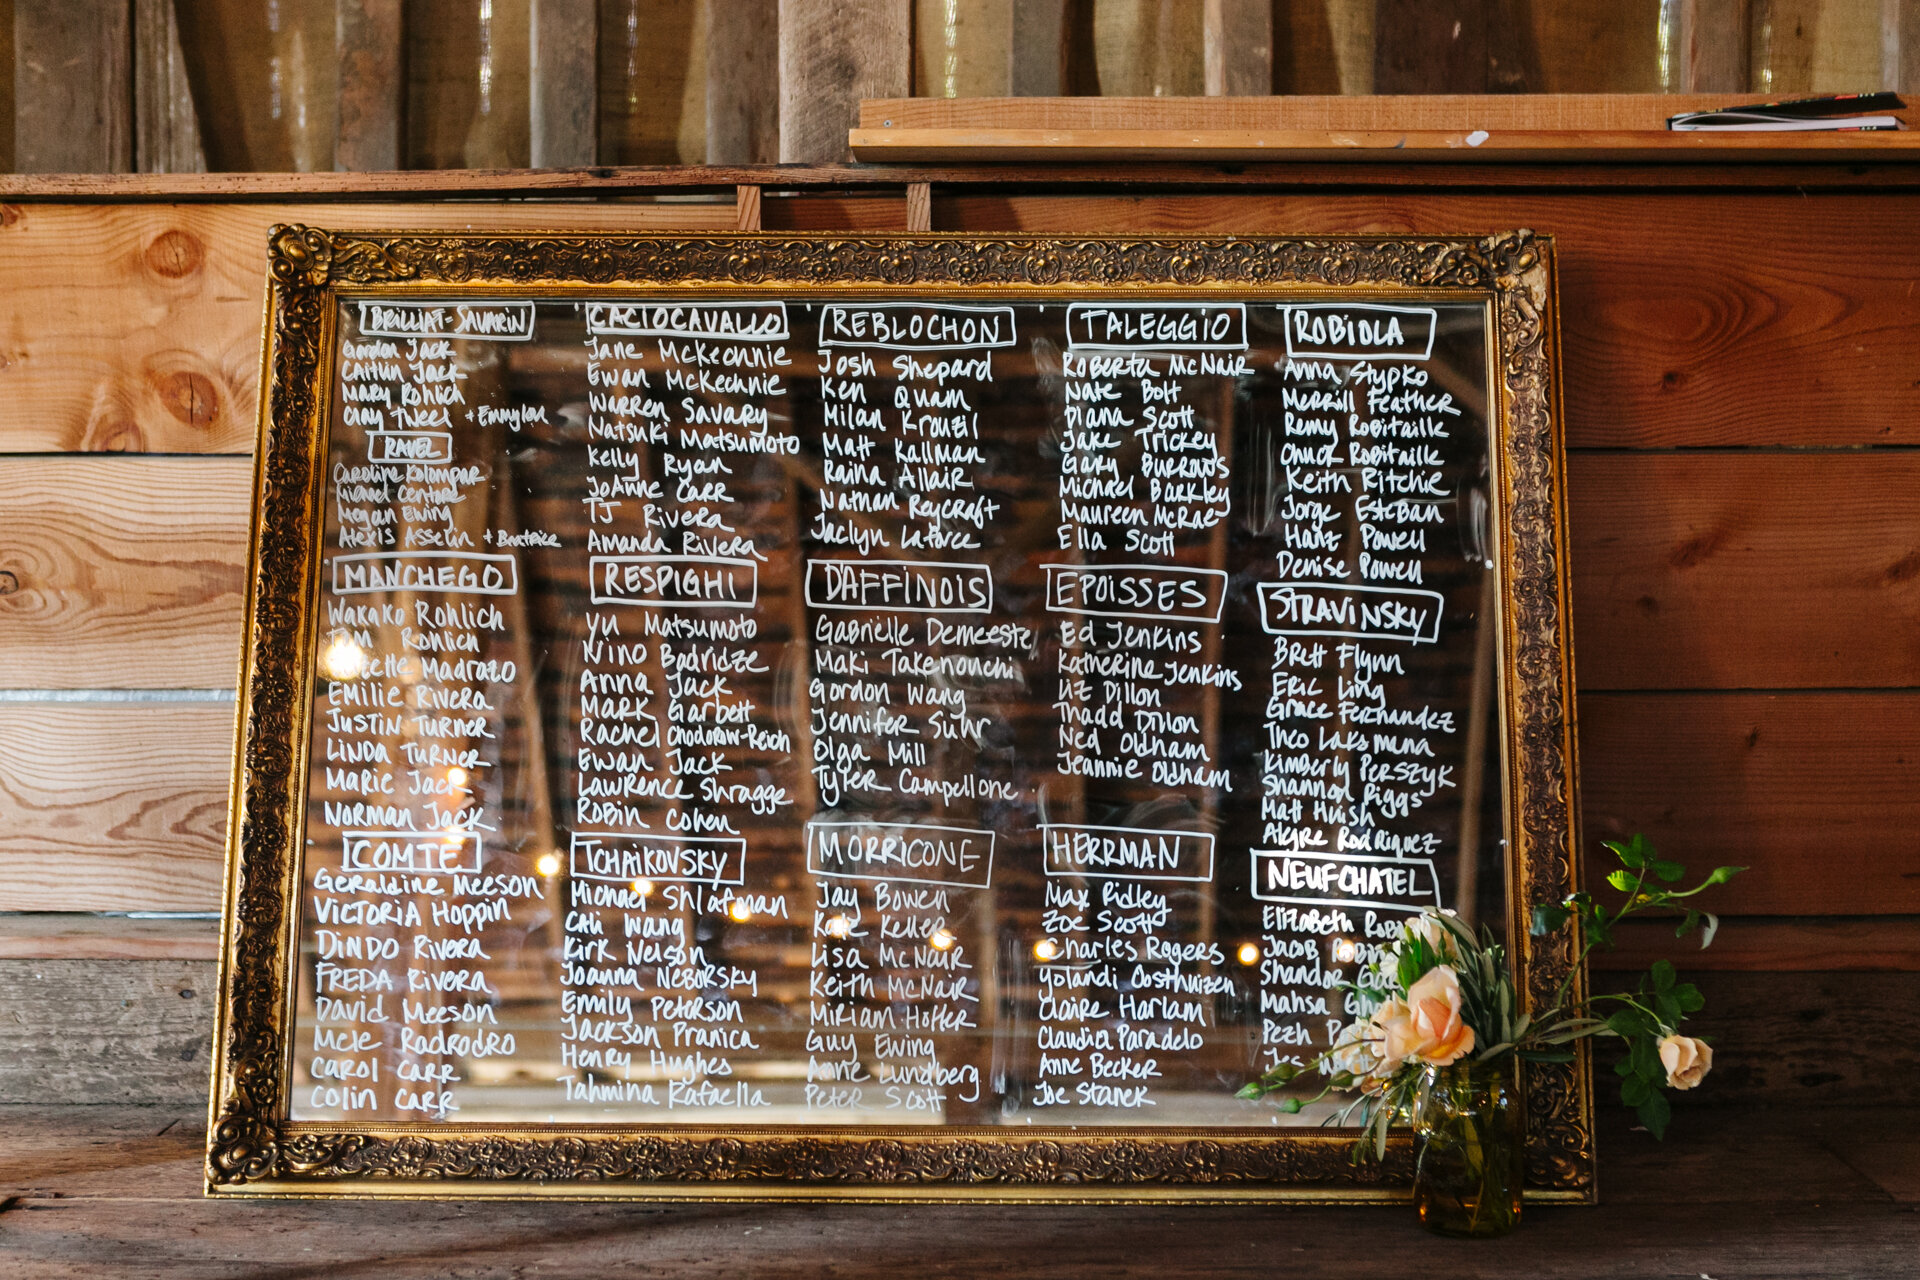 BRILLIAT-SAVARIN
Gordon Jack
Caitlin Jack
Mary Rohlich
Clay Tweel + Emmylou
RAVEL
Caroline Kolompar
Michael Centore
Megan Ewing
Alexis Asselin + Beatrice
MANCHEGO
Wakako Rohlich
Tom Rohlich
Madrazo
Emilie Rivera
Justin Turner
Linda Turner
Marie Jack
Norman Jack
COMTE
Geraldine Meeson
Victoria Hoppin
Dindo Rivera
Freda Rivera
David Meeson
Mele Radrodro
Carol Carr
Colin Carr
CACIOCAVALLO
Jane McKechnie
Ewan McKechnie
Warren Savary
Natsuki Matsumoto
Kelly Ryan
JoAnne Carr
TJ Rivera
Amanda Rivera
RESPIGHI
Yu Matsumoto
Nino Badridze
Anna Jack
Mark Garbett
Rachel Chodorow-Reich
Ewan Jack
Lawrence Shragge
Robin Cohen
TCHAIKOVSKY
Michael Shlafman
Cali Wang
Kirk Nelson
Joanna Neborsky
Emily Peterson
Jackson Pranica
Henry Hughes
Tahmina Rafaella
REBLOCHON
Josh Shepard
Ken Quam
Milan Krouzil
Matt Kallman
Raina Allair
Nathan Reycraft
Jaclyn Laforce
D'AFFINOIS
Gabrielle Demeeste
Maki Takenouchi
Gordon Wang
Jennifer Suhr
Olga Mill
Tyler Campellone
MORRICONE
Jay Bowen
Kate Keller
Lisa McNair
Keith McNair
Miriam Hoffer
Guy Ewing
Anne Lundberg
Peter Scott
TALEGGIO
Roberta McNair
Nate Bolt
Diana Scott
Jake Trickey
Gary Burrows
Michael Barkley
Maureen McRae
Ella Scott
EPOISSES
Ed Jenkins
Katherine Jenkins
Liz Dillon
Thadd Dillon
Ned Oldham
Jeannie Oldham
HERRMAN
Max Ridley
Zoe Scott
Charles Rogers
Yolandi Oosthuizen
Claire Harlam
Claudia Paradelo
Anne Becker
Joe Stanek
ROBIOLA
Anna Stypko
Merrill Feather
Remy Robitaille
Chuck Robitaille
Keith Ritchie
Jorge Esteban
Hanz Powell
Denise Powell
STRAVINSKY
Brett Flynn
Eric Ling
Grace Fernandez
Theo Laksmana
Kimberly Perszyk
Shannon Riggs
Matt Huish
Alegre Rodriquez
NEUFCHATEL
Elizabeth
Jacob
Shandor
Mahsa
Pezh